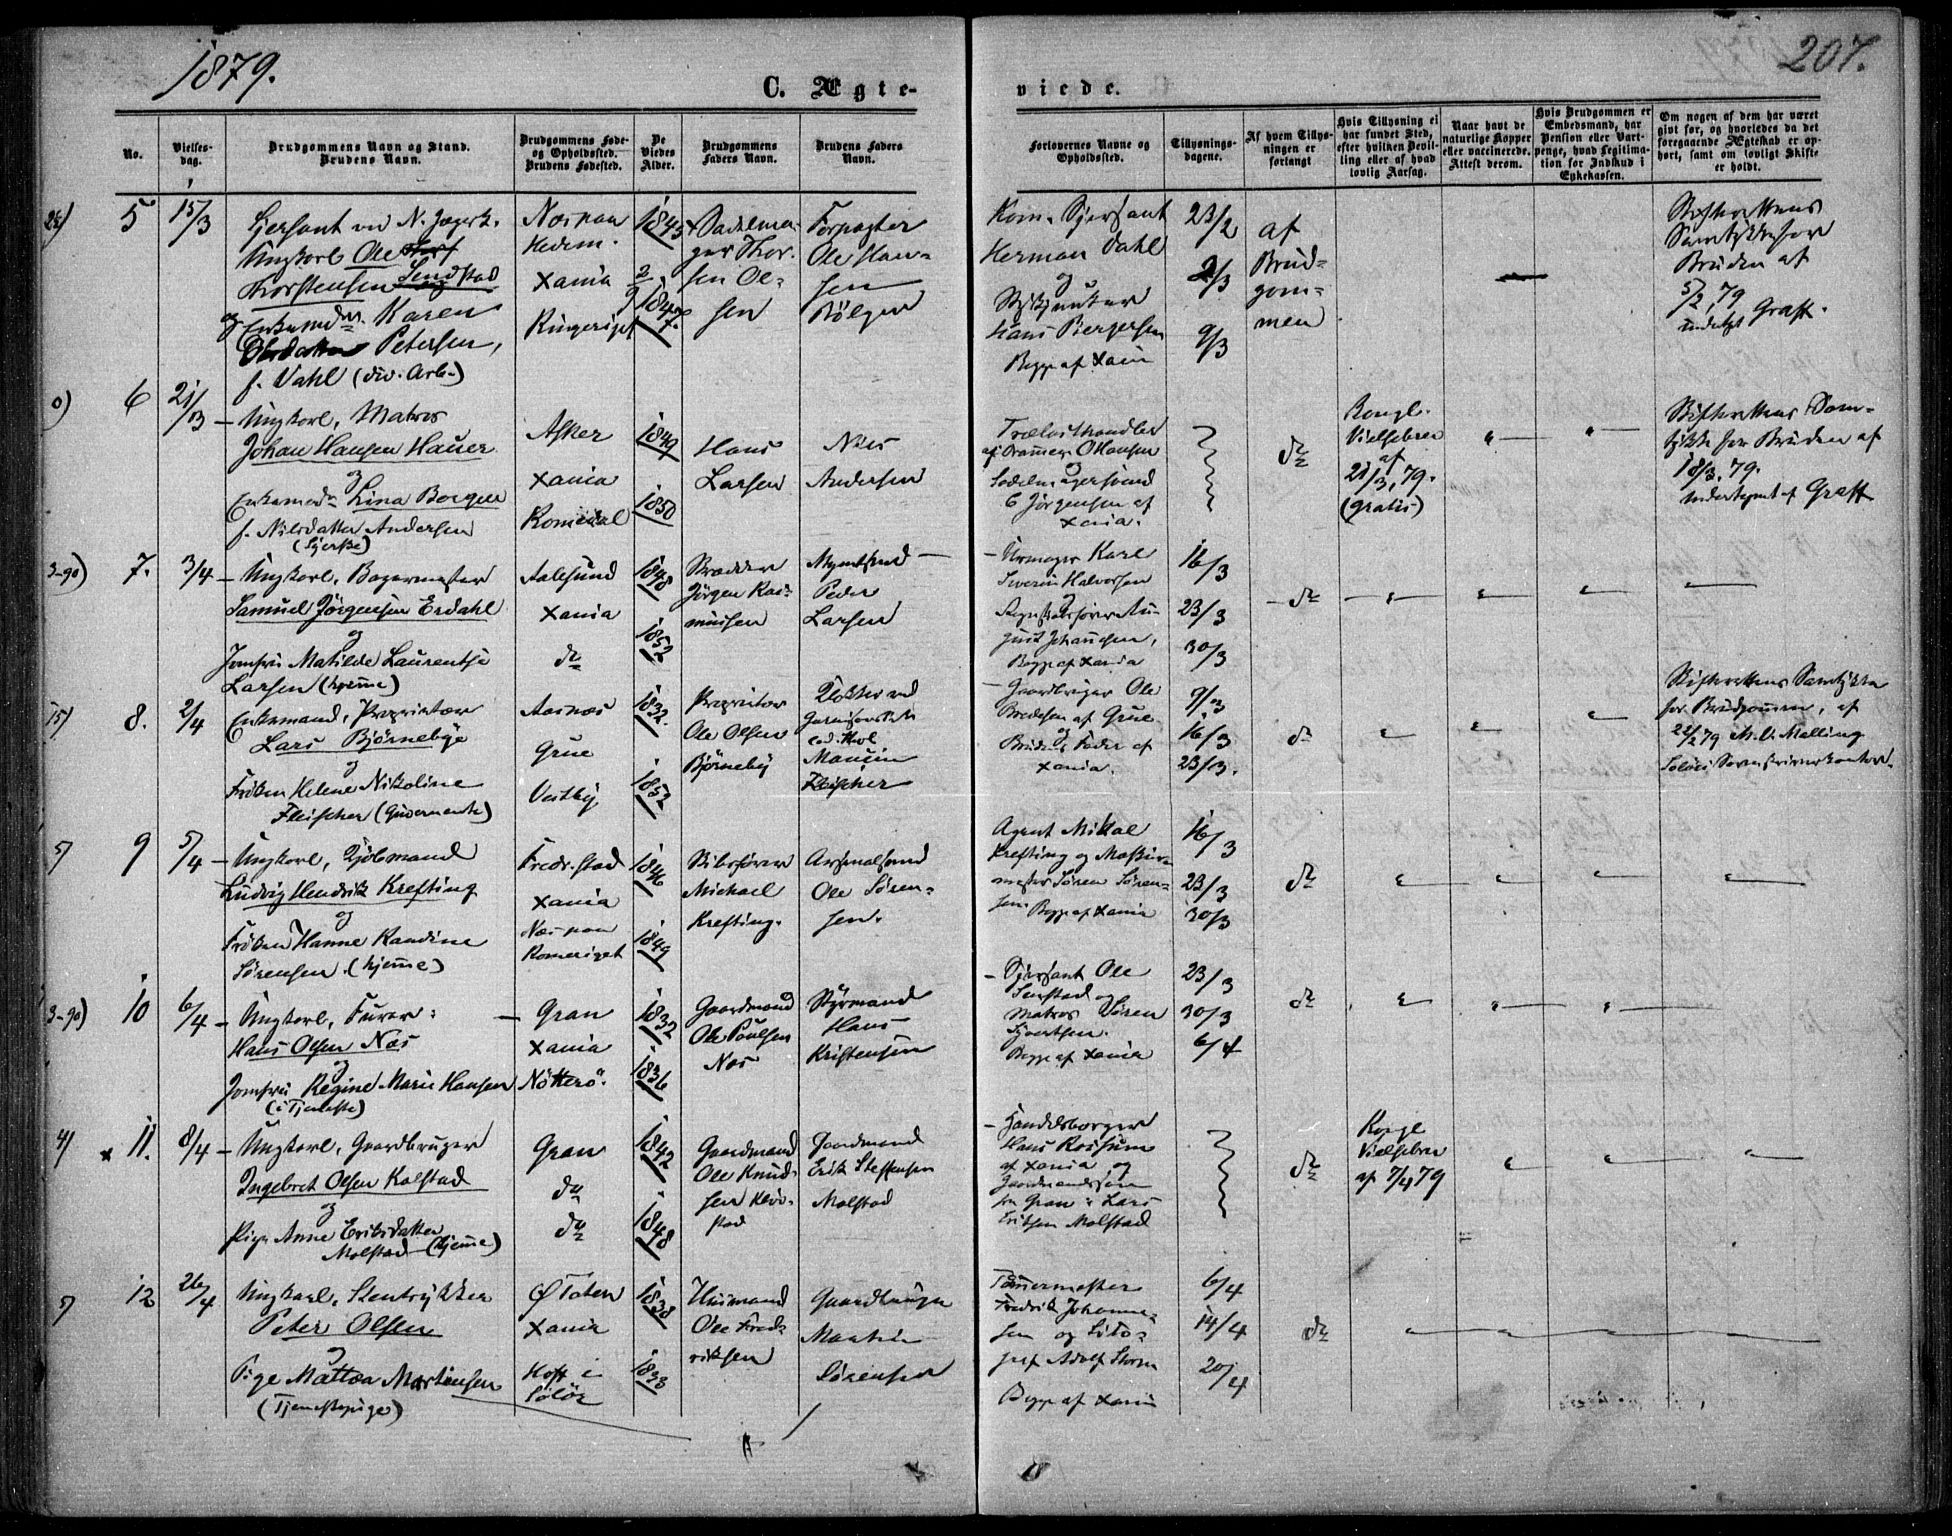 1879.
207.
C. Ægte-
viede.
No.
Vielses-
dag.
Brudgommens Navn og Stand.
Brudens Navn.
Brudgommens Føde-
og Opholdssted.
Brudens Fødested.
De
Viedes
Alder.
Brudgommens
Faders Navn.
Brudens Faders
Navn.
Forlovernes Navne og
Opholdssted.
Tillysnings-
dagene.
Af hvem Tillys-
ningen er
forlangt
Hvis Tillysning ei
har fundet Sted,
efter hvilken Bevil-
ling eller af hvad
lovlig Aarsag.
Naar havt de
naturlige Kopper
eller vaccinerede.
Attest derom.
Hvis Brudgommen er
Embedsmand, har
Pension eller Vart-
penge, hvad Legitima-
tion for Indskud i
Enkekassen.
Om nogen af dem har været
givt før, og hvorledes da det
foregaaende Ægteskab er op-
hørt, samt om lovligt Skifte
er holdt.
5
15/3
Sersant ved N. Jægerk.
Ungkarl Ole
Thorstensen Sendstad
og Enkemadm. Karen
Petersen,
f. Dahl (div. Arb.)
Næs paa
Hedem.
Xania
Ringeriget
1845
1847
Sadelma-
ger Thor-
sten Ol-
sen
Forpagter
Ole Han-
sen
Kom. Sersant
Herman Dahl
og
Hans Bergersen
Begge af Xania
23/2
2/3
9/3
af
Brud-
gom-
men
Skifterettens
Samtykke for
Bruden af
5/2 79
undertegt Graff.
6
21/3
Ungkarl, Matros
Johan Hansen Hauer
og
Enkemadm Lina Borgen
f. Nilsdatter Andersen
Asker
Xania
Romedal
1849
1850
Hans
Larsen
Nils
Andersen
Trælasthandler
O Hansen
og
C Jørgensen af
Xania.
do
Kongl.
Vielsebrev
af
21/3, 79.
(gratis)
Skifterettens Sam-
tykke for Bruden af
18/3, 79.
undertegnet af Graff
7.
3/4
Ungkarl, Bagermester
Samuel Jørgensen Erdahl
og
Jomfru Matilde Laurentse
Larsen (hjeme)
Aalesund
Xania
do
1848
1852
Jørgen Ras-
mussen
Peder
Larsen
Urmager Karl
Severin Halvorsen
og
gust Johansen,
Begge af Xania
16/3
23/3
30/3
do
8.
2/4
Enkemand, Proprietær
Lars Bjørneby
og
Frøken Helene Nikoline
Fleischer (Guvernante)
Aasnæs
Grue
Vestby
1832.
1852
Proprietær
Ole Olsen
Bjørneby
Klokker ved
Fleischer
Gaardbruger Ole
af Grue
og
Brudens Fader af
Xania.
9/3
16/3
23/3.
do
Skifterettens Samtykke
for Brudgommen, af
22/2 79
Solørs Sorenskriverkontor.
9
5/4
Ungkarl, Kjøbmand
Ludvig Hendrik Krefting
og
Frøken Hanne Randine
Sørensen. (hjeme)
Fredr.stad
Xania
Næs paa
Romeriget
1846
1849
Skibsfører
Michael
Krefting.
Arsenalsmd
Ole Søren-
sen.
Agent Mikal
Krefting og Maskin-
mester Søren Søren-
sen. Begge af Xania
16/3
23/3
30/3
do
10
6/4
Ungkarl, Furer
Hans Olsen Næs
og
Jomfru Regine Marie Hansen
(i Tjeneste)
Gran
Xania
Nøtterö.
1832
1836
Gaardmand
Ole Poulsen
Næs
Styrmand
Hans
Kristensen
Sjersant Ole
Senstad og
Matros Søren
Begge af Xania
23/3
30/3
6/4
do
11.
8/4
Ungkarl, Gaardbruger
Ingebret Olsen Kolstad
og
Pige Anne Eriksdatter
Molstad (hjeme)
Gran
do
do
1842
1848
Gaardmand
Ole Knud-
sen
Gaardmand
Erik Steffensen
Molstad
Handelsborger
Hans Rossum
af Xania og
Gaardmandssøn
fra Gran : Lars
Eriksen Molstad
do
Kongl
Vielsebrev
af 7/4 79
12
26/4
Ungkarl, Stentrykker
Peter Olsen
og
Pige Mathea Martinsen
(Tjenestepige)
Ø Toten
Xania
Hoff i
Solør
1838
1833
Husmand
Ole Fred-
riksen
Gaardbruger
Martin
Sørensen
Fredrik Johanne-
sen og Lito-
graf Adolf Storm
Begge af Xania
6/4
14/4
20/4
do